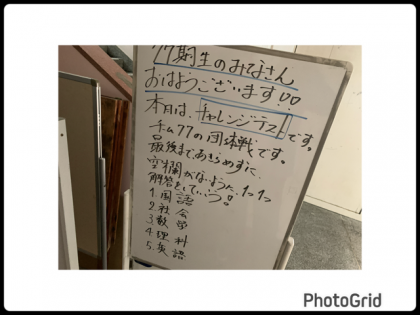 77期生のみなさん
おはようございます!!
本日は、チャレンジテストです。
チーム77の団体戦です。
最後まであきらめずに、
空欄がないように、1つ1つ
解答をしていこう!
1.国語
2.社会
3.数学
4.理科
5.英語
PhotoGrid